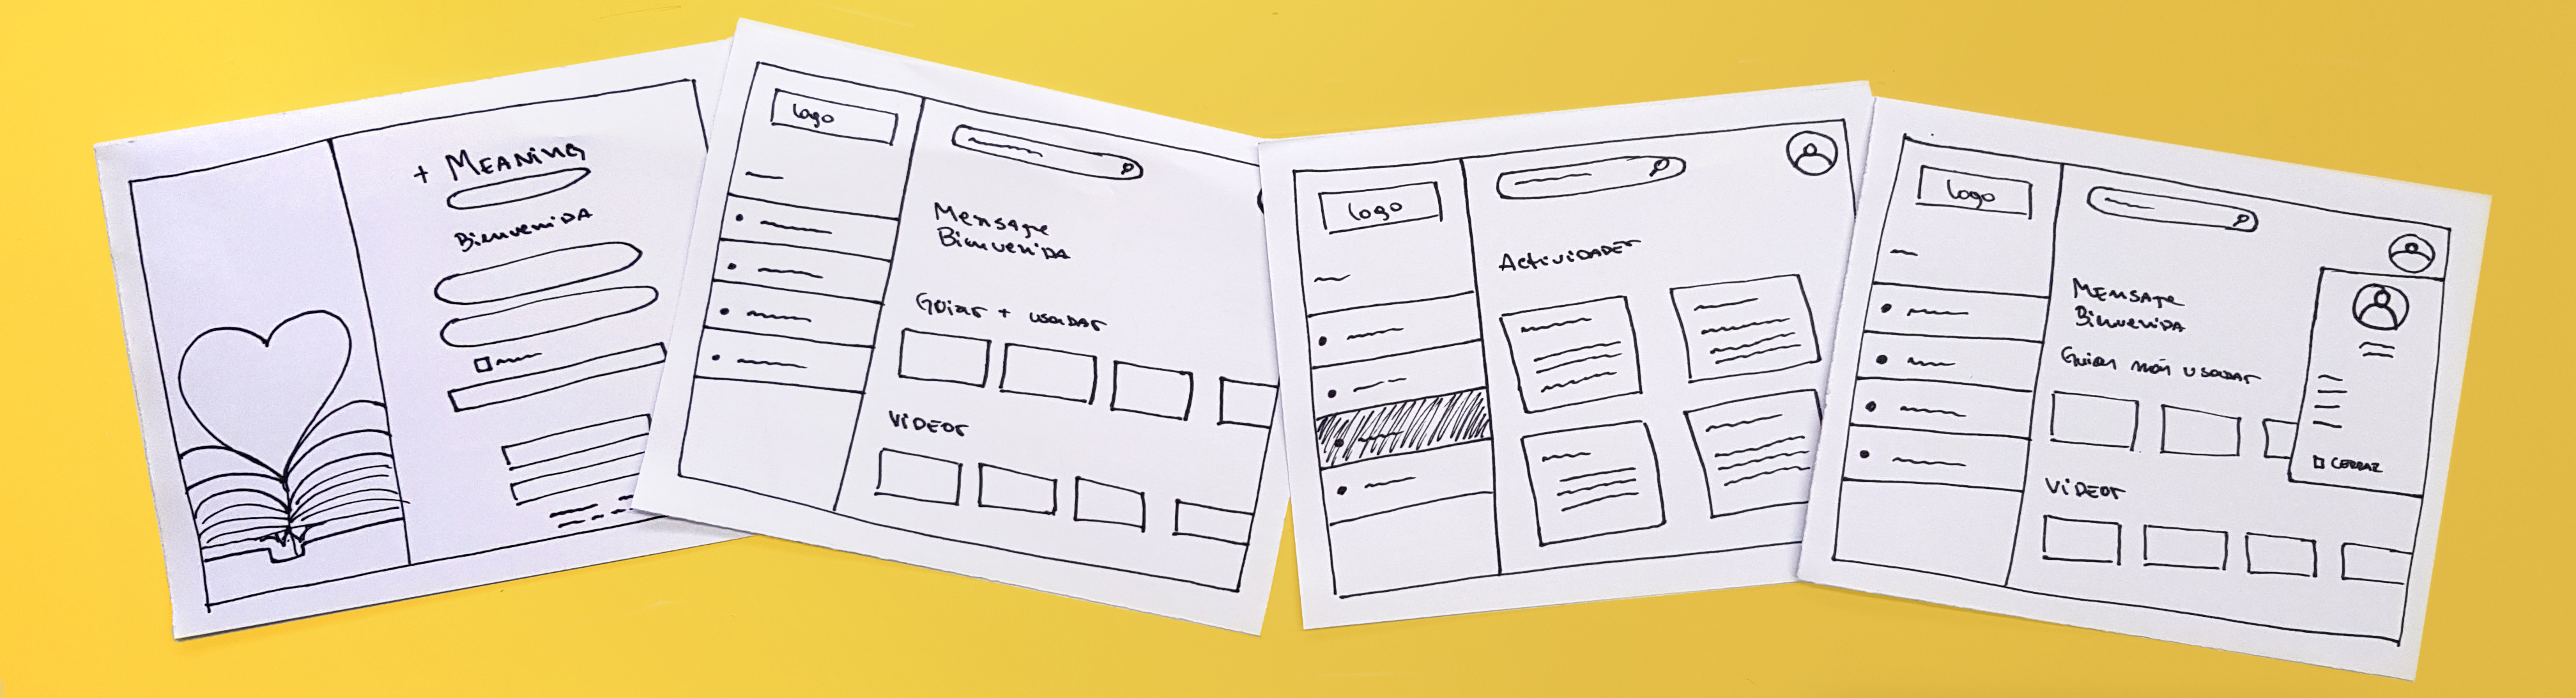 + MEANING
BienveniDA
Logo
Mensaje
BienveniDA
Guias + usadas
ViDEOS
Logo
ActiviDADES
Logo
MENSAJE
BienveniDA
Guias más usadas
ViDEOS
CERRAR